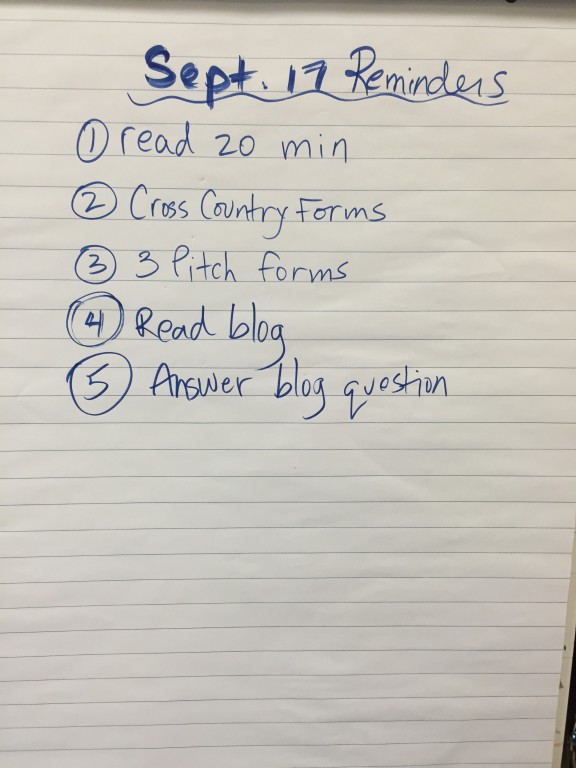 Sept. 17 Reminders
① read 20 min
② Cross Country Forms
③ 3 Pitch forms
④ Read blog
⑤ Answer blog question